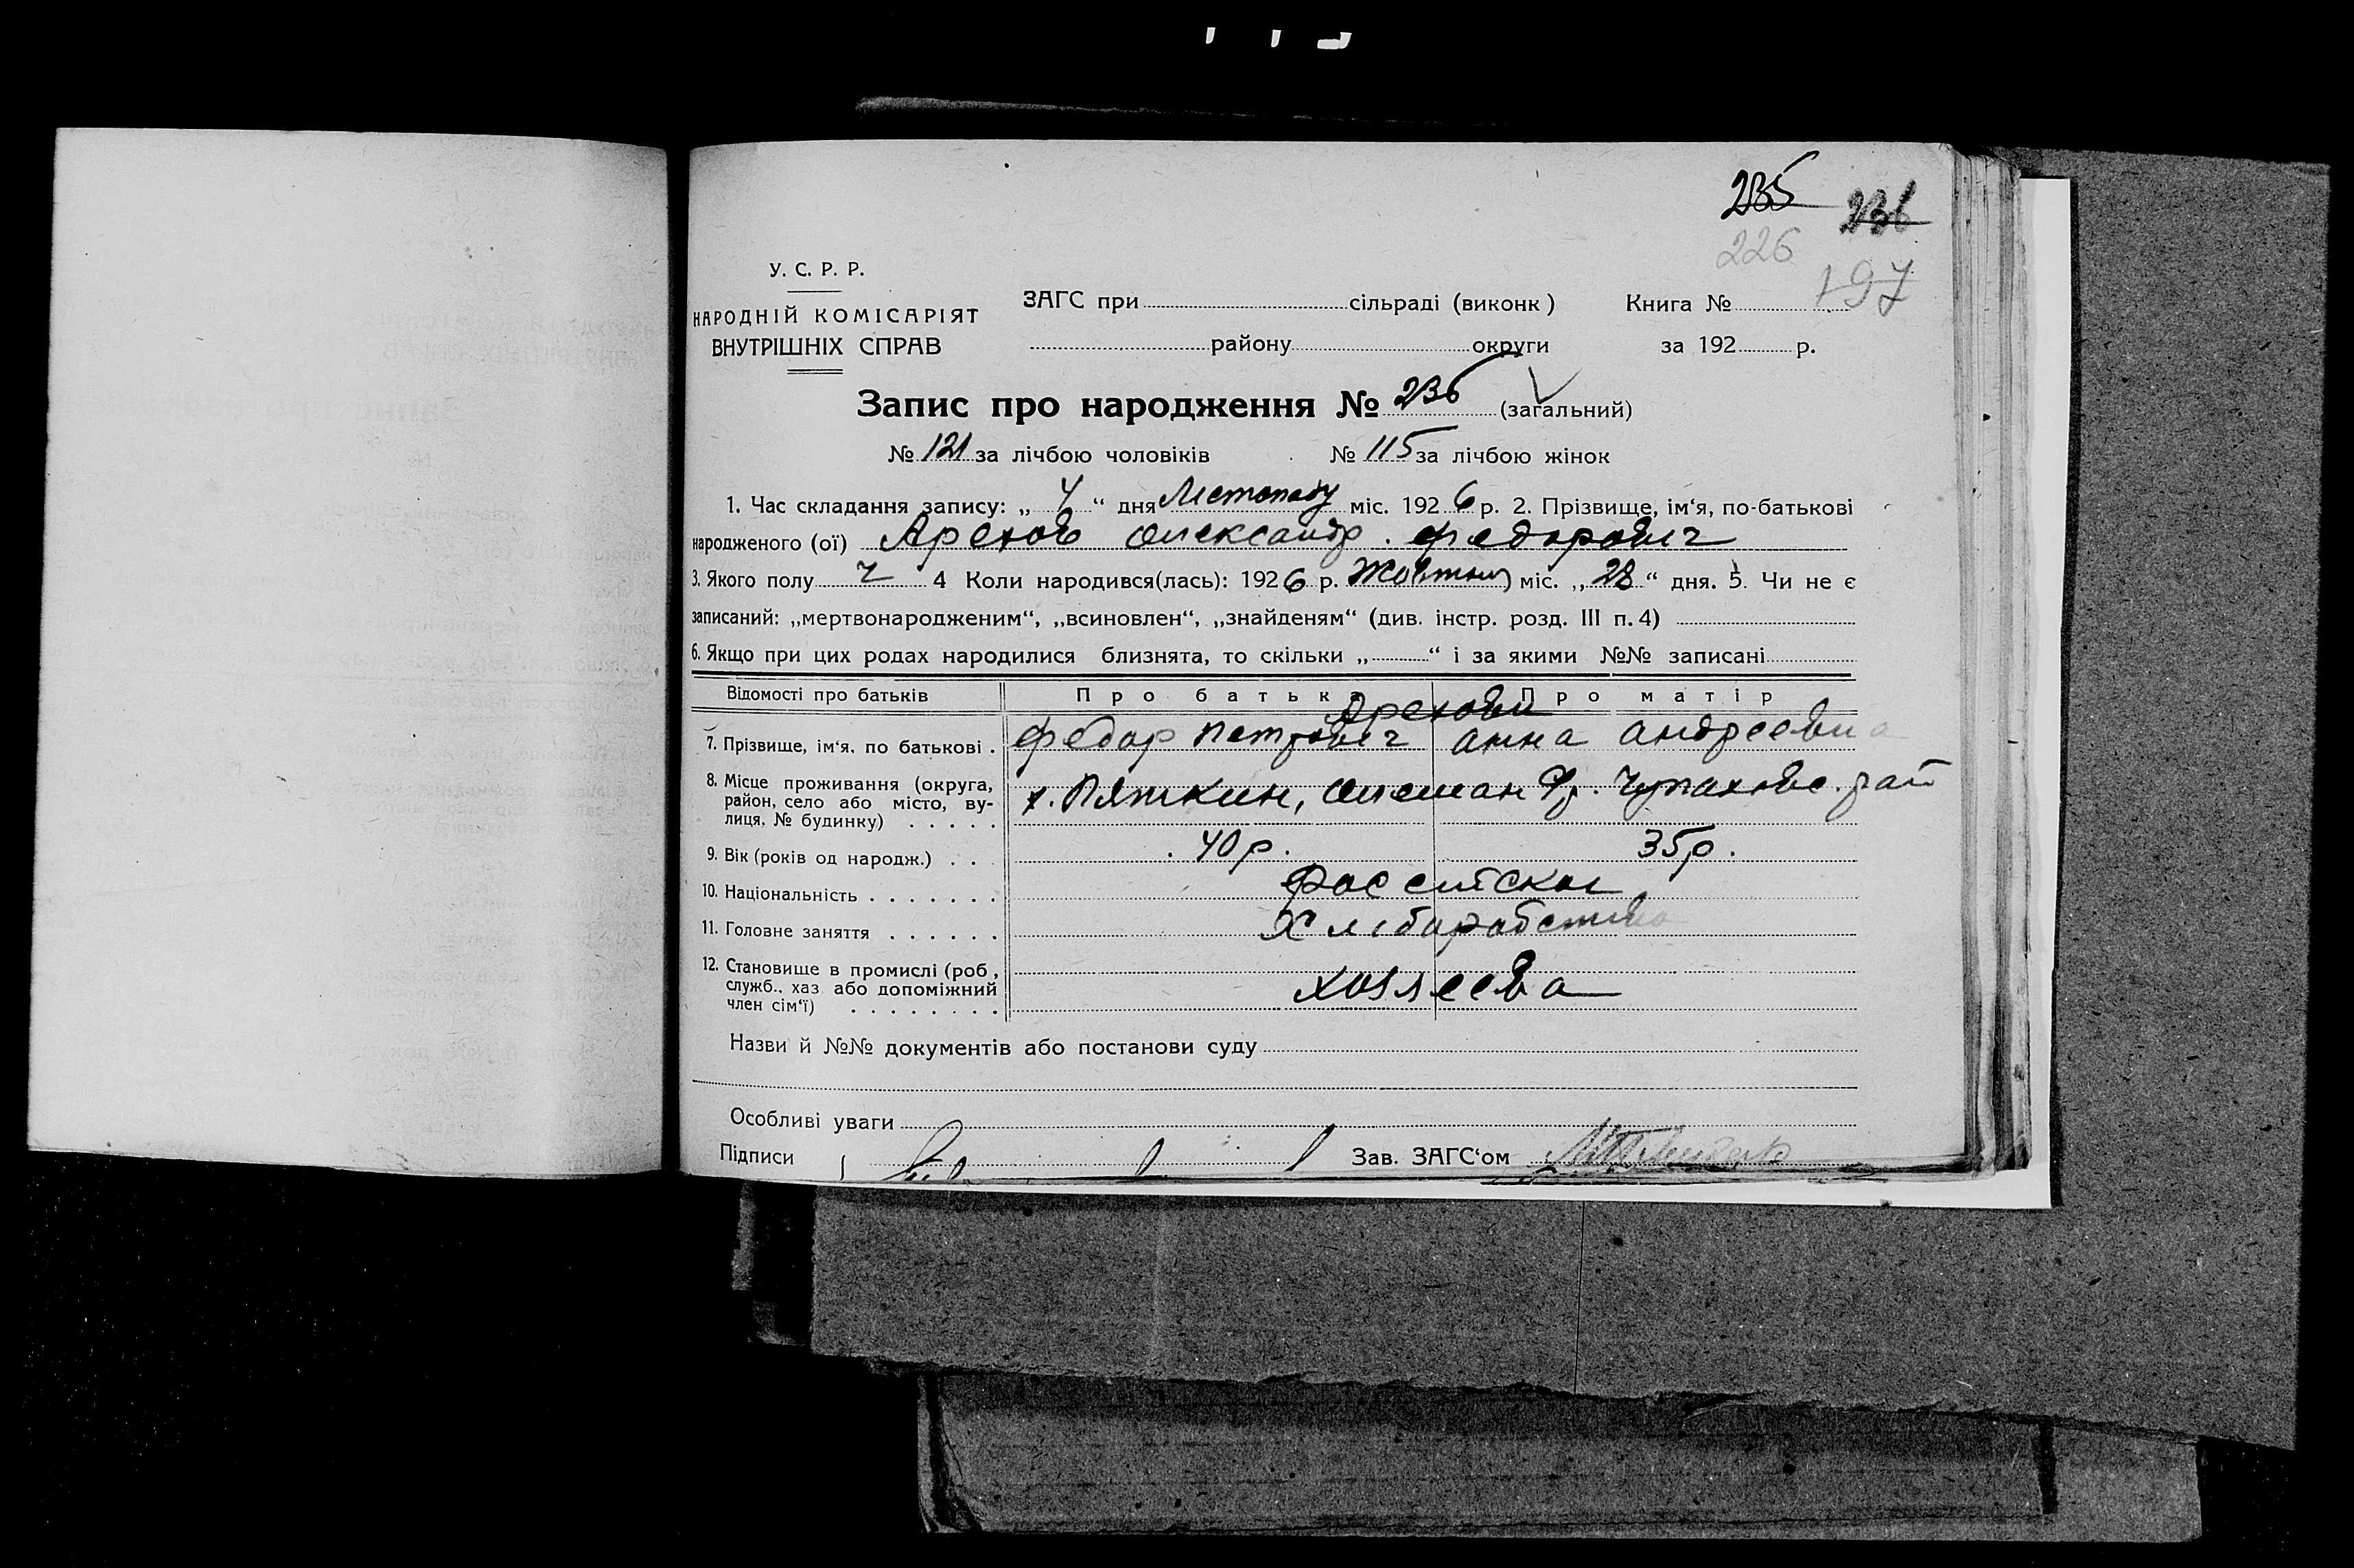 235 236
226
197
У. С. Р. Р.
НАРОДНІЙ КОМІСАРІЯТ
ВНУТРІШНІХ СПРАВ
ЗАГС при сільраді (виконк)
району округи
Книга №
за 192 р.
Запис про народження № 236 (загальний)
№ 121 за лічбою чоловіків № 115 за лічбою жінок
1. Час складання запису: „ 4 “ дня Листопаду міс. 1926 р. 2. Прізвище, ім‘я, по-батькові
народженого (ої) Арехов Олександр Федорович
3. Якого полу ч 4 Коли народився(лась): 1926 р. Жовтня міс. „ 28 “ дня. 5. Чи не є
записаний: „мертвонародженим“, „всиновлен“, „знайденям“ (див. інстр. розд. III п. 4)
6. Якщо при цих родах народилися близнята, то скільки „ “ і за якими №№ записані
Відомості про батьків Про батька Про матір
Арехови
7. Прізвище, ім‘я, по батькові . Федор Петрович Анна Андреевна
8. Місце проживання (округа,
район, село або місто, ву-
лиця, № будинку) . . . . .
х. Пяткин, Чупаховс. рай
9. Вік (років од народж.) . . . 40 р. 35 р.
10. Національність . . . . . . .
11. Головне заняття . . . . . . Хліборобство
12. Становище в промислі (роб.,
служб., хаз. або допоміжний
член сім‘ї) . . . . . . . .
хозяева
Назви й №№ документів або постанови суду
Особливі уваги
Підписи Зав. ЗАГС‘ом